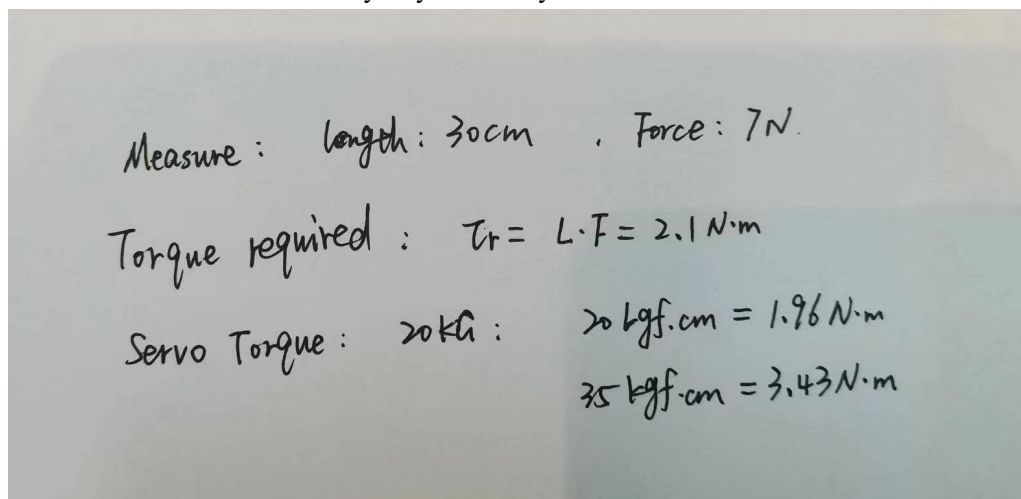 Measure : length : 30cm , Force : 7N.
Torque required : τr = L·F = 2.1 N·m
Servo Torque : 20kG : 20 kgf.cm = 1.96 N·m
35 kgf.cm = 3.43 N·m